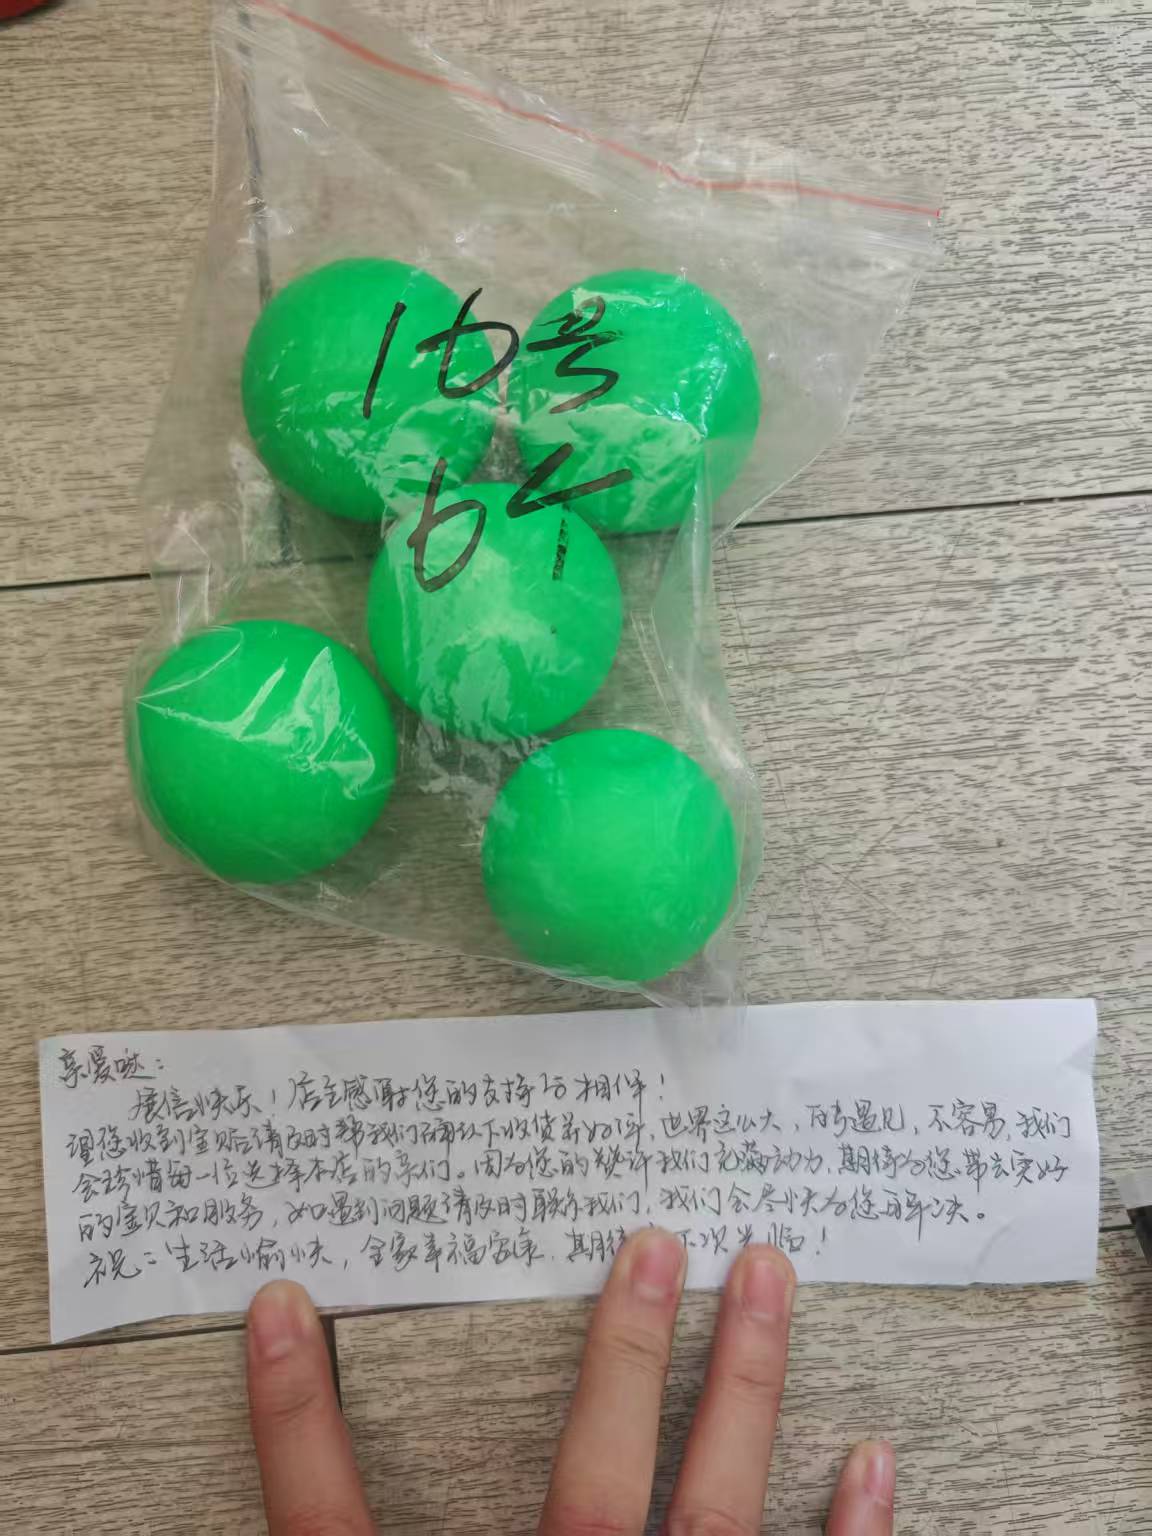 16号
6个
亲爱哒：
展信快乐！店主感谢您的支持与相伴！
望您收到宝贝后请及时帮我们确认下收货并好评，世界这么大，能遇见，不容易，我们
会珍惜每一位选择本店的亲们。因为您的关注我们充满动力，期待为您带去更好
的宝贝和服务，如遇到问题请及时联系我们，我们会尽快为您解决。
祝：生活愉快，全家幸福安康，期待下次光临！